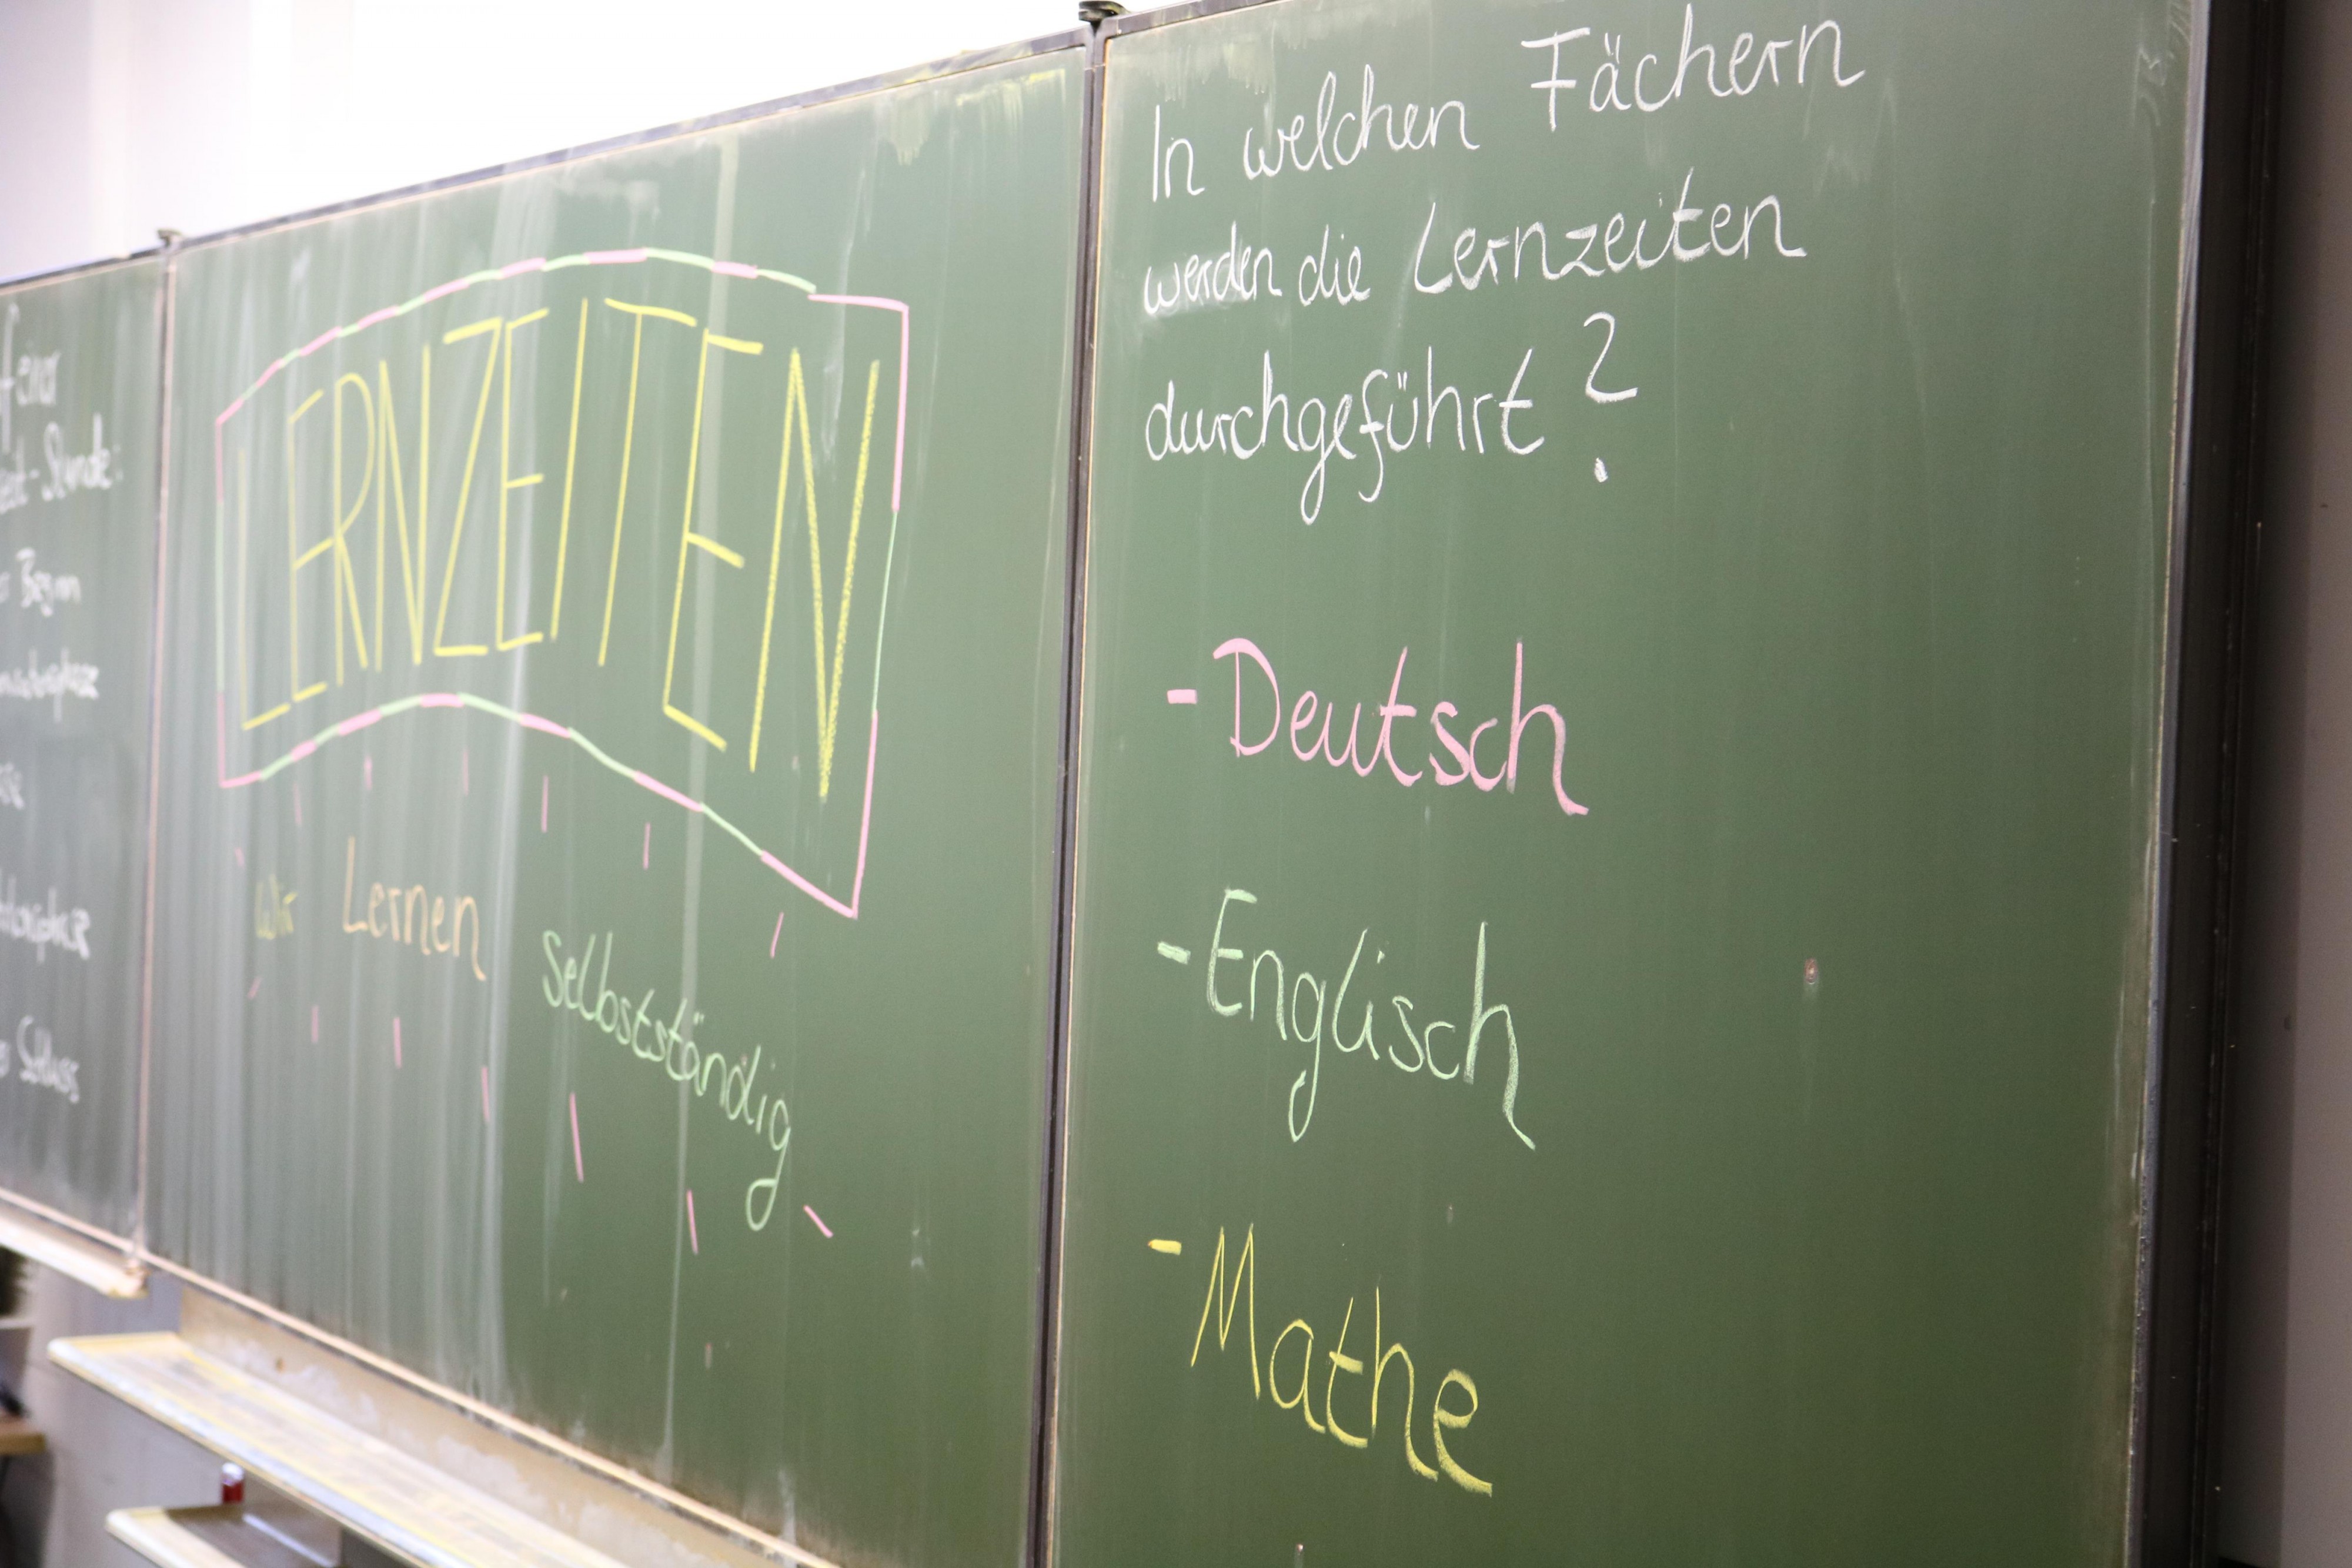 einer
Stunde:
Beginn
Schluss
LERNZEITEN
Wir Lernen Selbstständig
In welchen Fächern
werden die Lernzeiten
durchgeführt?
- Deutsch
- Englisch
- Mathe